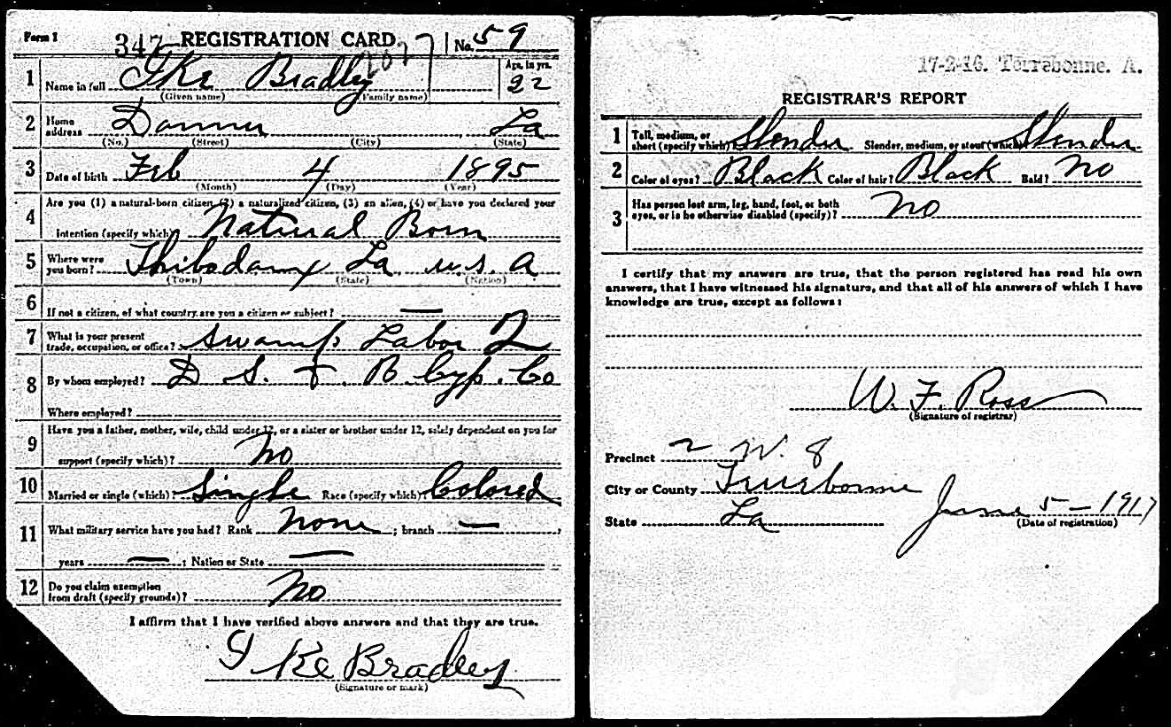 Form 1 347 REGISTRATION CARD No. 59
1 Name in full Ike Bradley Age, in yrs. 22
(Given name) (Family name)
2 Home address Donner La
(No.) (Street) (City) (State)
3 Date of birth Feb 4 1895
(Month) (Day) (Year)
4 Are you (1) a natural-born citizen, (2) a naturalized citizen, (3) an alien, (4) or have you declared your
intention (specify which)? Natural Born
5 Where were you born? Thibodaux La U.S. A
(Town) (State) (Nation)
6 If not a citizen, of what country are you a citizen or subject? —
7 What is your present trade, occupation, or office? Swamp Labor 2
8 By whom employed? D S. & B Cyp. Co
Where employed?
9 Have you a father, mother, wife, child under 12, or a sister or brother under 12, solely dependent on you for
support (specify which)? No
10 Married or single (which)? Single Race (specify which)? Colored
11 What military service have you had? Rank none ; branch — ;
years — ; Nation or State —
12 Do you claim exemption from draft (specify grounds)? No
I affirm that I have verified above answers and that they are true.
I Ke Bradley
(Signature or mark)
17-2-16. Terrebonne. A.
REGISTRAR'S REPORT
1 Tall, medium, or short (specify which)? Slender Slender, medium, or stout (which)? Slender
2 Color of eyes? Black Color of hair? Black Bald? No
3 Has person lost arm, leg, hand, foot, or both
eyes, or is he otherwise disabled (specify)? No
I certify that my answers are true, that the person registered has read his own
answers, that I have witnessed his signature, and that all of his answers of which I have
knowledge are true, except as follows:
W. F. Ross
(Signature of registrar)
Precinct 2 W. 8
City or County Terrebonne
State La June 5-1917
(Date of registration)